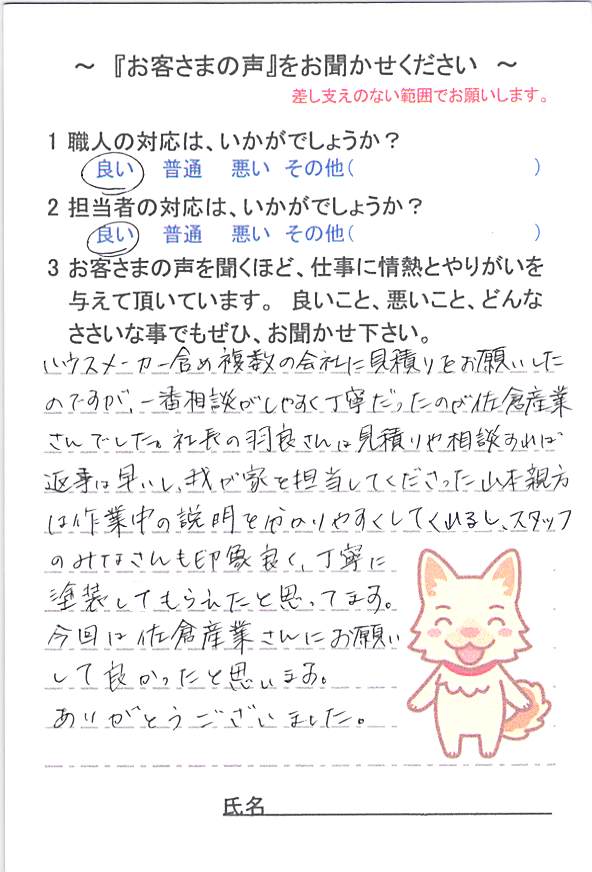 ～ 『お客さまの声』をお聞かせください ～
差し支えのない範囲でお願いします。
1 職人の対応は、いかがでしょうか？
良い 普通 悪い その他( )
2 担当者の対応は、いかがでしょうか？
良い 普通 悪い その他( )
3 お客さまの声を聞くほど、仕事に情熱とやりがいを
与えて頂いています。 良いこと、悪いこと、どんな
ささいな事でもぜひ、お聞かせ下さい。
ハウスメーカー含め複数の会社に見積りをお願いした
のですが、一番相談がしやすく丁寧だったのが佐倉産業
さんでした。社長の羽良さんは見積りや相談すれば
返事は早いし、我が家を担当してくださった山本親方
は作業中の説明を分かりやすくしてくれるし、スタッフ
のみなさんも印象良く、丁寧に
塗装してもらえたと思ってます。
今回は佐倉産業さんにお願い
して良かったと思います。
ありがとうございました。
氏名